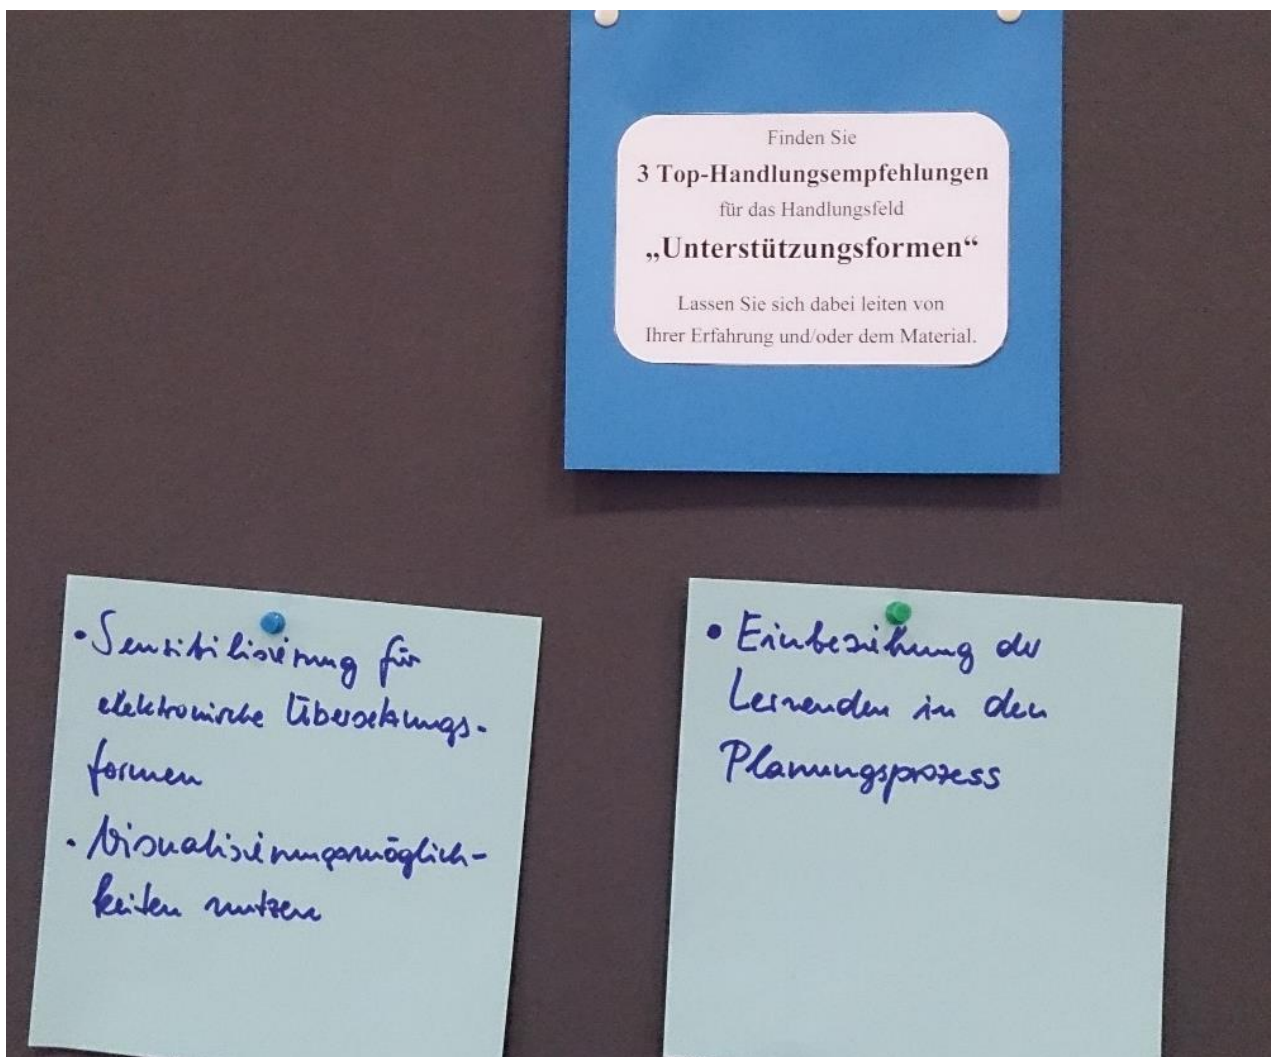 Finden Sie
3 Top-Handlungsempfehlungen
für das Handlungsfeld
„Unterstützungsformen“
Lassen Sie sich dabei leiten von
Ihrer Erfahrung und/oder dem Material.
• Sensibilisierung für
elektronische Übersetzungs-
formen
• Visualisierungsmöglich-
keiten nutzen
• Einbeziehung der
Lernenden in den
Planungsprozess